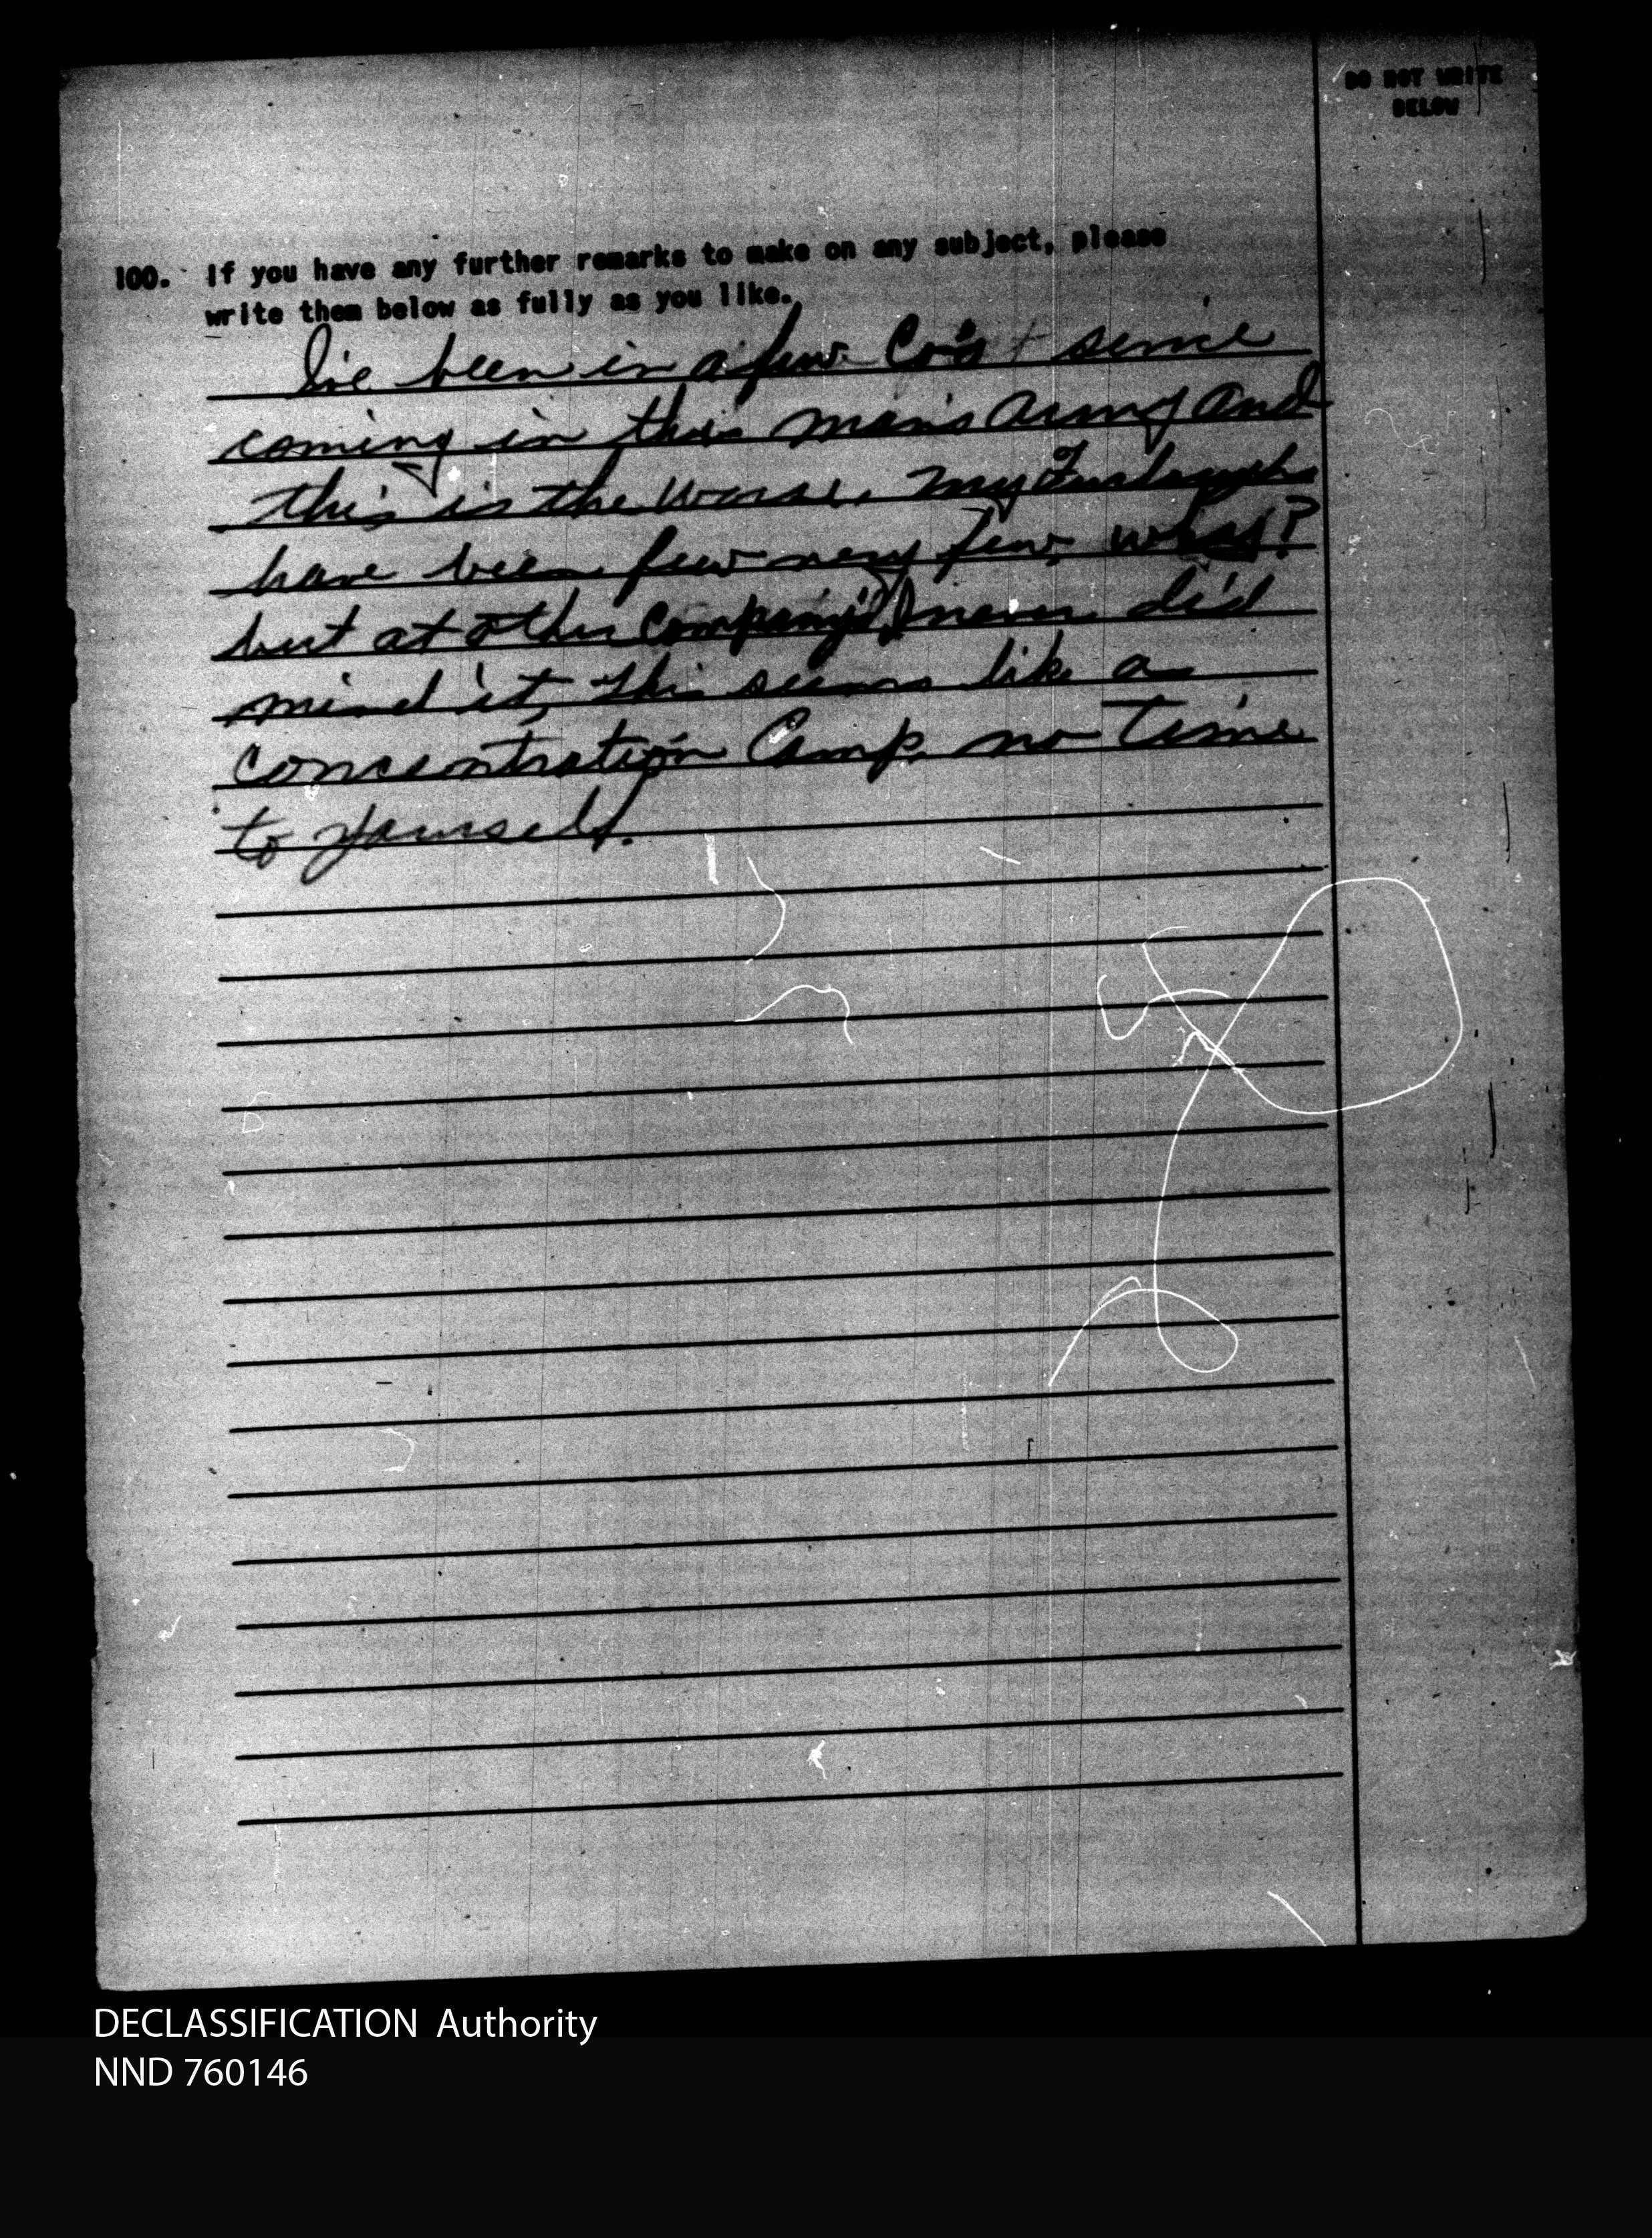 DO NOT WRITE
BELOW
100. If you have any further remarks to make on any subject, please
write them below as fully as you like.
I've been in a few Co's since
coming in this man's army and
this is the worse. My Furloughs
have been few very few,
but at other Company's I never did
mind it, this seems like a
concentration Camp no time
to yourself.
DECLASSIFICATION Authority
NND 760146